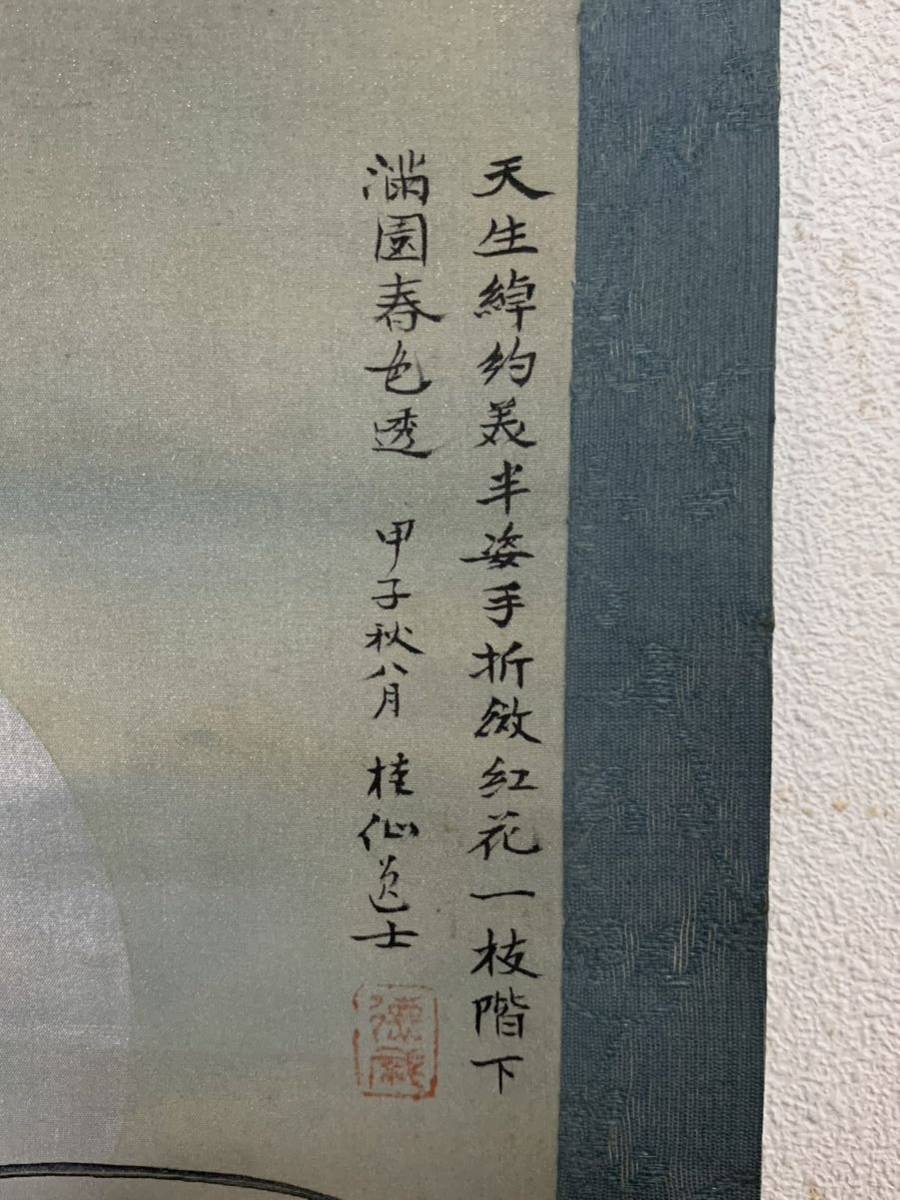 天生綽約美半姿手折微紅花一枝階下
滿園春色透 甲子秋八月 桂仙道士